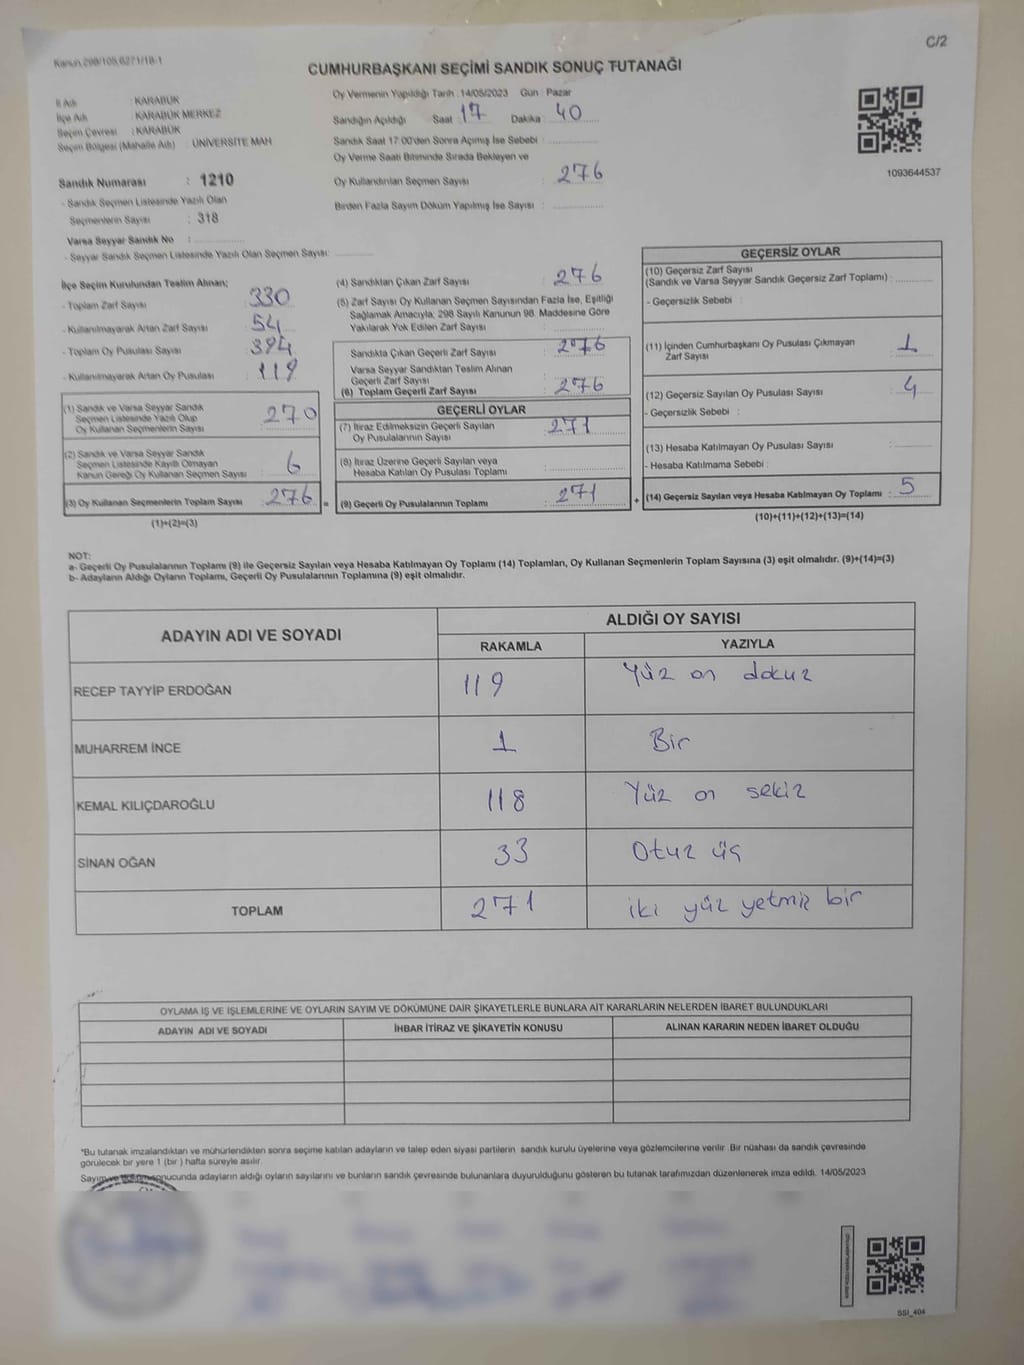 Kanun 298/105,6271/18-1
C/2
CUMHURBAŞKANI SEÇİMİ SANDIK SONUÇ TUTANAĞI
İl Adı : KARABÜK
İlçe Adı : KARABÜK MERKEZ
Seçim Çevresi : KARABÜK
Seçim Bölgesi (Mahalle Adı) : ÜNİVERSİTE MAH
Sandık Numarası : 1210
- Sandık Seçmen Listesinde Yazılı Olan
Seçmenlerin Sayısı : 318
Varsa Seyyar Sandık No :
- Seyyar Sandık Seçmen Listesinde Yazılı Olan Seçmen Sayısı:
Oy Vermenin Yapıldığı Tarih :14/05/2023 Gün : Pazar
Sandığın Açıldığı Saat 17 Dakika : 40
Sandık Saat 17:00'den Sonra Açımış İse Sebebi :
Oy Verme Saati Bitiminde Sırada Bekleyen ve
Oy Kullandırılan Seçmen Sayısı : 276
Birden Fazla Sayım Döküm Yapılmış İse Sayısı :
1093644537
İlçe Seçim Kurulundan Teslim Alınan;
- Toplam Zarf Sayısı : 330
- Kullanılmayarak Artan Zarf Sayısı : 54
- Toplam Oy Pusulası Sayısı : 394
- Kullanılmayarak Artan Oy Pusulası : 119
(1) Sandık ve Varsa Seyyar Sandık
Seçmen Listesinde Yazılı Olup
Oy Kullanan Seçmenlerin Sayısı : 270
(2) Sandık ve Varsa Seyyar Sandık
Seçmen Listesinde Kayıtlı Olmayan
Kanun Gereği Oy Kullanan Seçmen Sayısı : 6
(3) Oy Kullanan Seçmenlerin Toplam Sayısı : 276 =
(1)+(2)=(3)
(4) Sandıktan Çıkan Zarf Sayısı : 276
(5) Zarf Sayısı Oy Kullanan Seçmen Sayısından Fazla İse, Eşitliği
Sağlamak Amacıyla, 298 Sayılı Kanunun 98. Maddesine Göre
Yakılarak Yok Edilen Zarf Sayısı :
Sandıkta Çıkan Geçerli Zarf Sayısı : 276
Varsa Seyyar Sandıktan Teslim Alınan
Geçerli Zarf Sayısı :
(6) Toplam Geçerli Zarf Sayısı : 276
GEÇERLİ OYLAR
(7) İtiraz Edilmeksizin Geçerli Sayılan
Oy Pusulalarının Sayısı : 271
(8) İtiraz Üzerine Geçerli Sayılan veya
Hesaba Katılan Oy Pusulası Toplamı :
(9) Geçerli Oy Pusulalarının Toplamı : 271 +
GEÇERSİZ OYLAR
(10) Geçersiz Zarf Sayısı
(Sandık ve Varsa Seyyar Sandık Geçersiz Zarf Toplamı) :
- Geçersizlik Sebebi :
(11) İçinden Cumhurbaşkanı Oy Pusulası Çıkmayan
Zarf Sayısı : 1
(12) Geçersiz Sayılan Oy Pusulası Sayısı : 4
- Geçersizlik Sebebi :
(13) Hesaba Katılmayan Oy Pusulası Sayısı :
- Hesaba Katılmama Sebebi :
(14) Geçersiz Sayılan veya Hesaba Katılmayan Oy Toplamı : 5
(10)+(11)+(12)+(13)=(14)
NOT:
a- Geçerli Oy Pusulalarının Toplamı (9) ile Geçersiz Sayılan veya Hesaba Katılmayan Oy Toplamı (14) Toplamları, Oy Kullanan Seçmenlerin Toplam Sayısına (3) eşit olmalıdır. (9)+(14)=(3)
b- Adayların Aldığı Oyların Toplamı, Geçerli Oy Pusulalarının Toplamına (9) eşit olmalıdır.
ADAYIN ADI VE SOYADI ALDIĞI OY SAYISI
RAKAMLA YAZIYLA
RECEP TAYYİP ERDOĞAN 119 Yüz on dokuz
MUHARREM İNCE 1 Bir
KEMAL KILIÇDAROĞLU 118 Yüz on sekiz
SİNAN OĞAN 33 Otuz üç
TOPLAM 271 iki yüz yetmiş bir
OYLAMA İŞ VE İŞLEMLERİNE VE OYLARIN SAYIM VE DÖKÜMÜNE DAİR ŞİKAYETLERLE BUNLARA AİT KARARLARIN NELERDEN İBARET BULUNDUKLARI
ADAYIN ADI VE SOYADI İHBAR İTİRAZ VE ŞİKAYETİN KONUSU ALINAN KARARIN NEDEN İBARET OLDUĞU
*Bu tutanak imzalandıktan ve mühürlendikten sonra seçime katılan adayların ve talep eden siyasi partilerin sandık kurulu üyelerine veya gözlemcilerine verilir. Bir nüshası da sandık çevresinde
görülecek bir yere 1 (bir) hafta süreyle asılır.
Sayım ve döküm sonucunda adayların aldığı oyların sayılarını ve bunların sandık çevresinde bulunanlara duyurulduğunu gösteren bu tutanak tarafımızdan düzenlenerek imza edildi. 14/05/2023
SSI_404